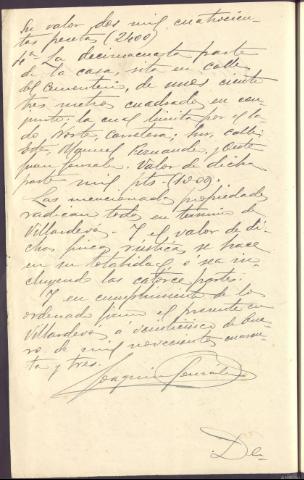 Su valor dos mil cuatrocien-
tas pesetas (2400)
4ª La decimacuarta parte
de la casa, sita en calle
del Cementerio, de unos ciento
tres metros cuadrados en con-
junto; la cual limita por
Norte, Carretera; Sur, calle;
Este, Manuel Fernandez, y Oeste
Juan Gonzalez. Valor de dicha
parte mil pts. (1000).
Las mencionadas propiedades
radican todas en termino de
Villardevós. Y el valor de di-
chas fincas rusticas, se hace
en su totalidad o sea in-
cluyendo las catorce partes.
Y en cumplimiento de lo
ordenado firmo el presente en
Villardevós, a veinticinco de Ene-
ro, de mil novecientos cuaren-
ta y tres.
Joaquin Gonzalez